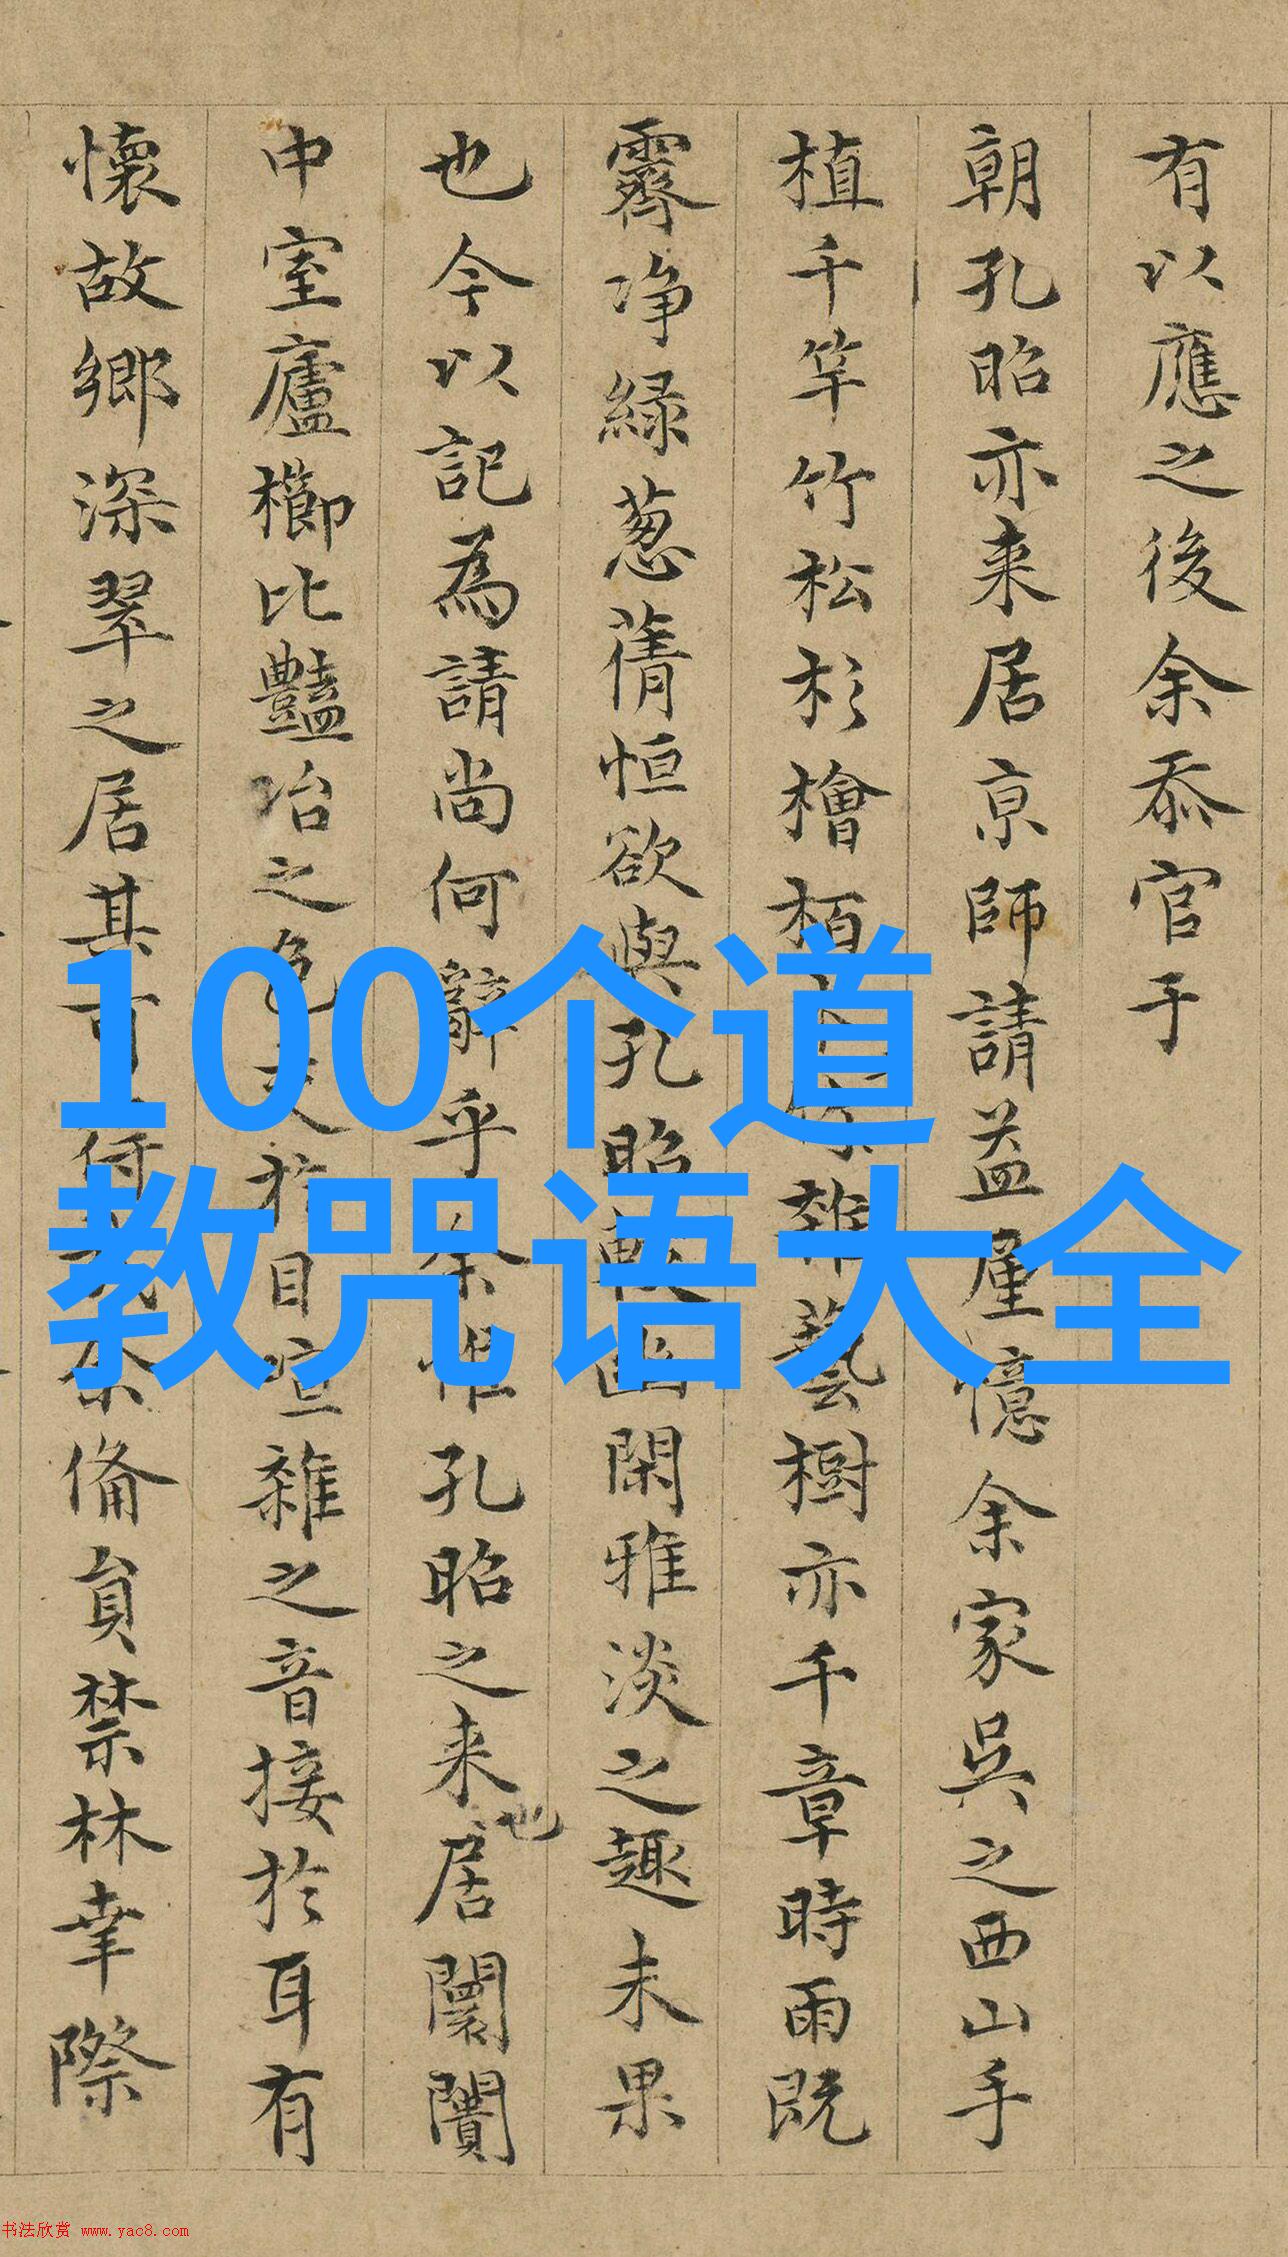 有以應之後余忝官于
朝孔昭亦来居京師請益屢憶余家吳之西山手
植千竿竹松杉檜栢雜藝樹亦千章時雨既
霽净緑葱蒨恒欲與孔昭幽閑雅淡之趣未果
也今以記為請尚何辭乎余惟孔昭之来居闤闠
也
中室廬櫛比豔冶之色交於目喧雜之音接於耳有
懷故鄉深翠之居其可得余備員禁林幸際
100个道
教咒语大全
书法欣赏 www.yac8.com